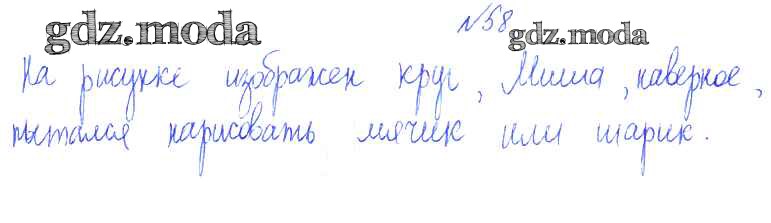 №58
gdz.moda gdz.moda
На рисунке изображен круг, Миша, наверное,
пытался нарисовать мячик или шарик.